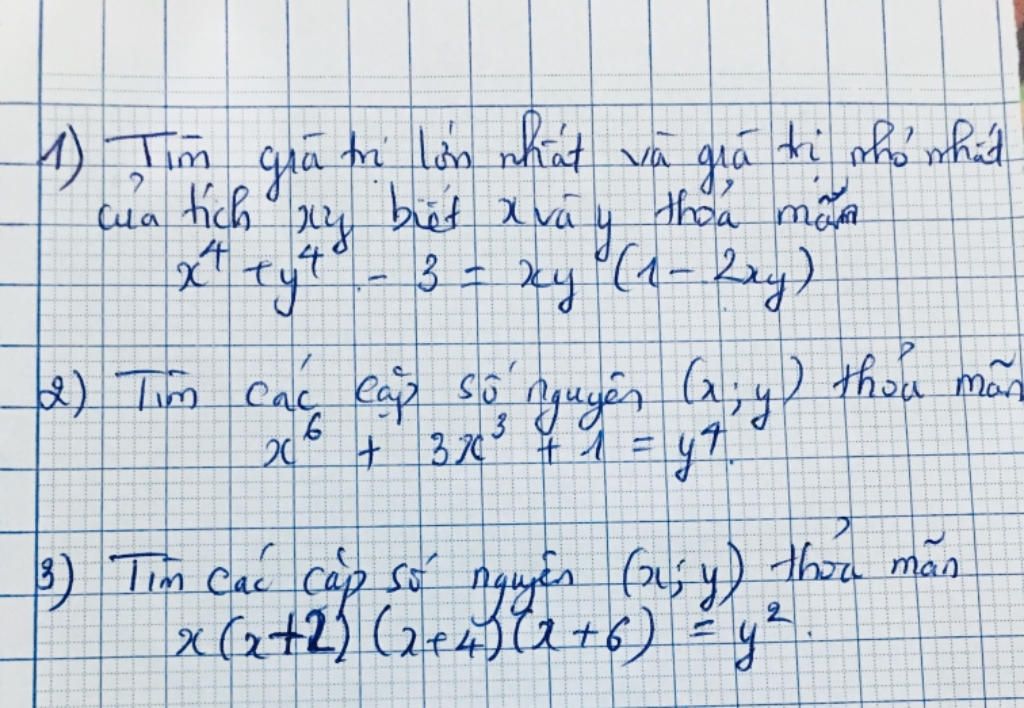 1) Tìm giá trị lớn nhất và giá trị nhỏ nhất
của tích xy biết x và y thoả mãn
x⁴ + y⁴ - 3 = xy (1 - 2xy)
2) Tìm các cặp số nguyên (x; y) thoả mãn
x⁶ + 3x³ + 1 = y⁴.
3) Tìm các cặp số nguyên (x; y) thoả mãn
x(x+2)(x+4)(x+6) = y².